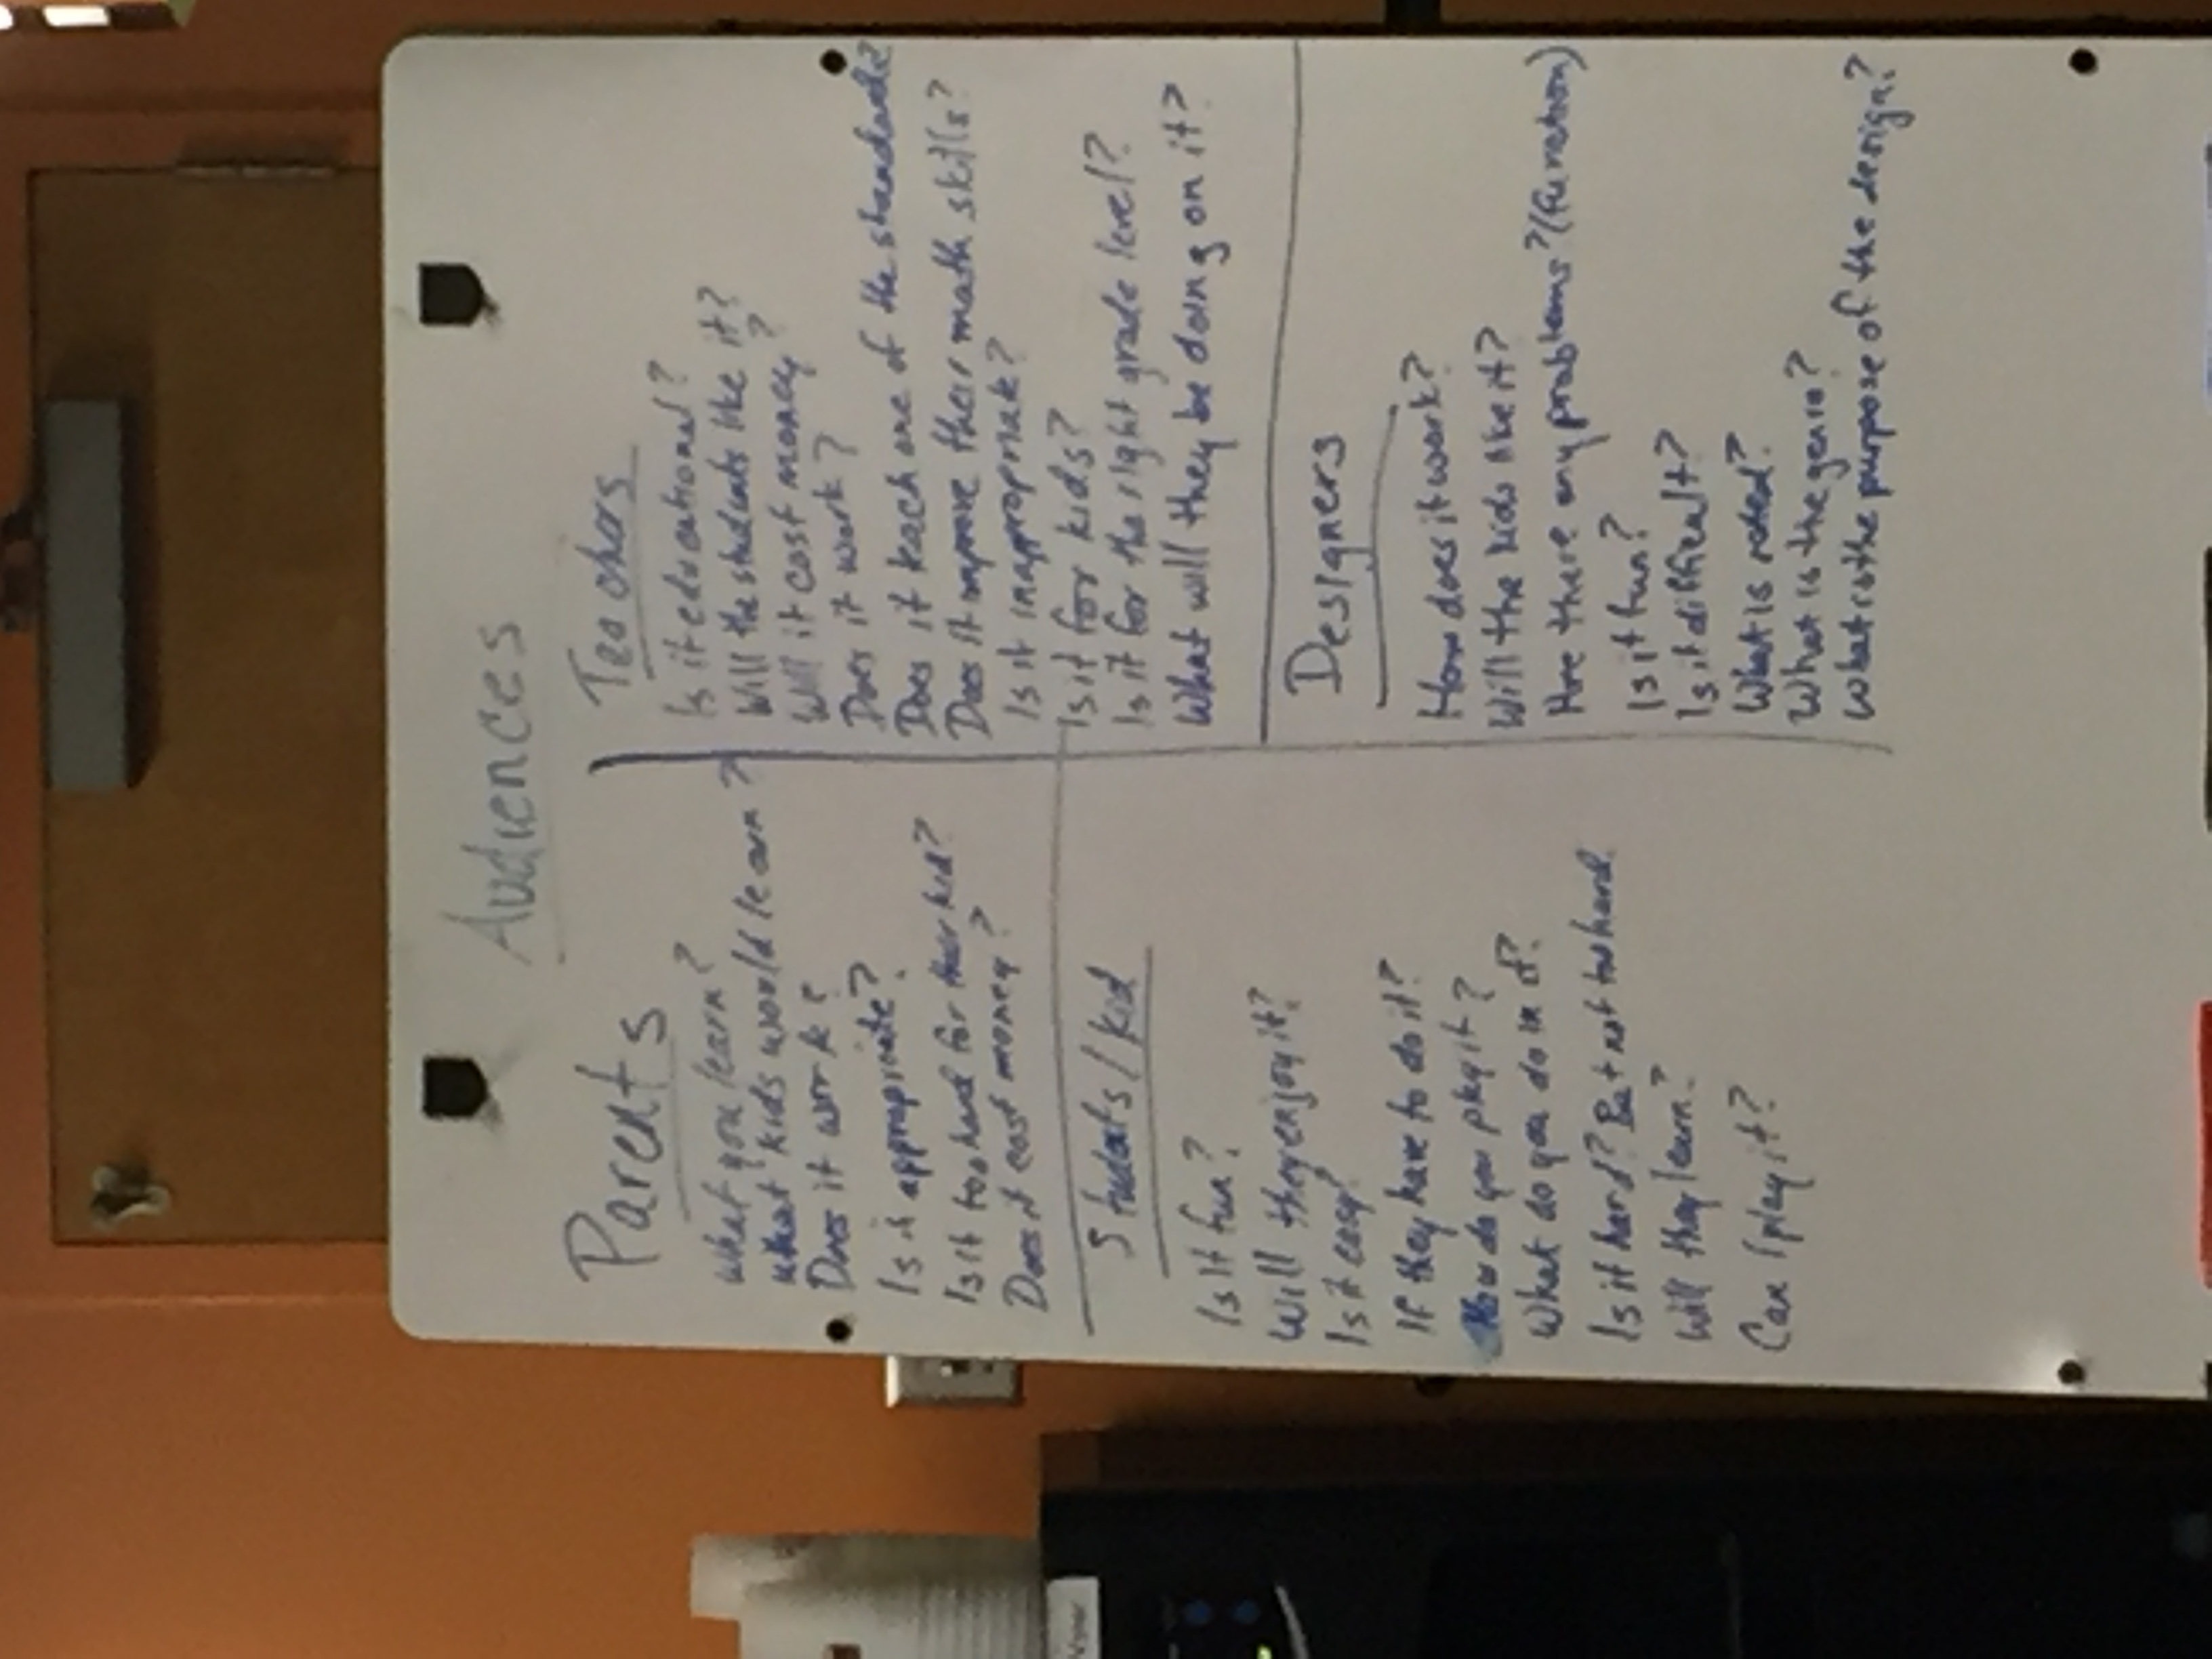 Audiences
Parents
What you learn?
What kids would learn?
Does it work?
Is it appropriate?
Is it too hard for their kid?
Does it cost money?
Students/kid
Is it fun?
Will they enjoy it?
Is it easy?
If they have to do it?
How do you play it?
What do you do in it?
Is it hard? But not too hard.
Will they learn?
Can I play it?
Teachers
Is it educational?
Will the students like it?
Will it cost money?
Does it work?
Does it teach one of the standards?
Does it improve their math skills?
Is it inappropriate?
Is it for kids?
Is it for the right grade level?
What will they be doing on it?
Designers
How does it work?
Will the kids like it?
Are there any problems? (function)
Is it fun?
Is it difficult?
What is rated?
What is the genre?
What is the purpose of the design?